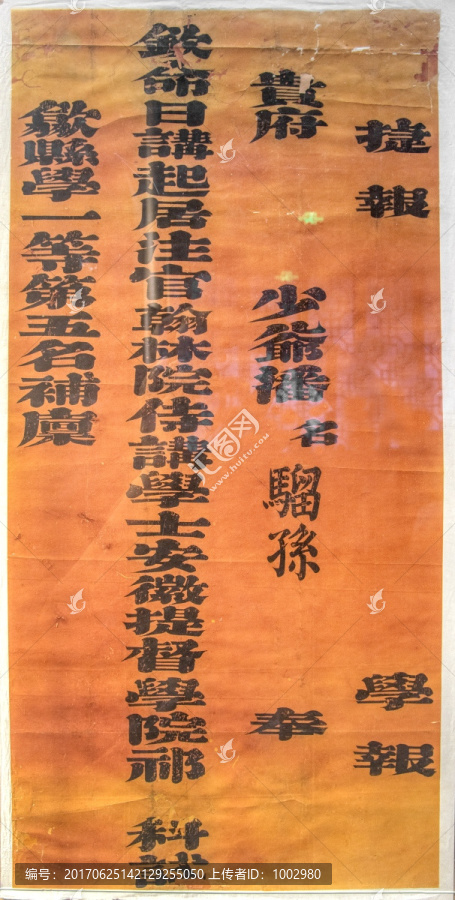 捷報 學報
貴府 少爺播名 騮孫 奉
欽命日講起居注官翰林院侍講學士安徽提督學院祁 科試
歙縣學一等第五名補廩
汇图网
www.huitu.com
编号:20170625142129255050 上传者ID:1002980